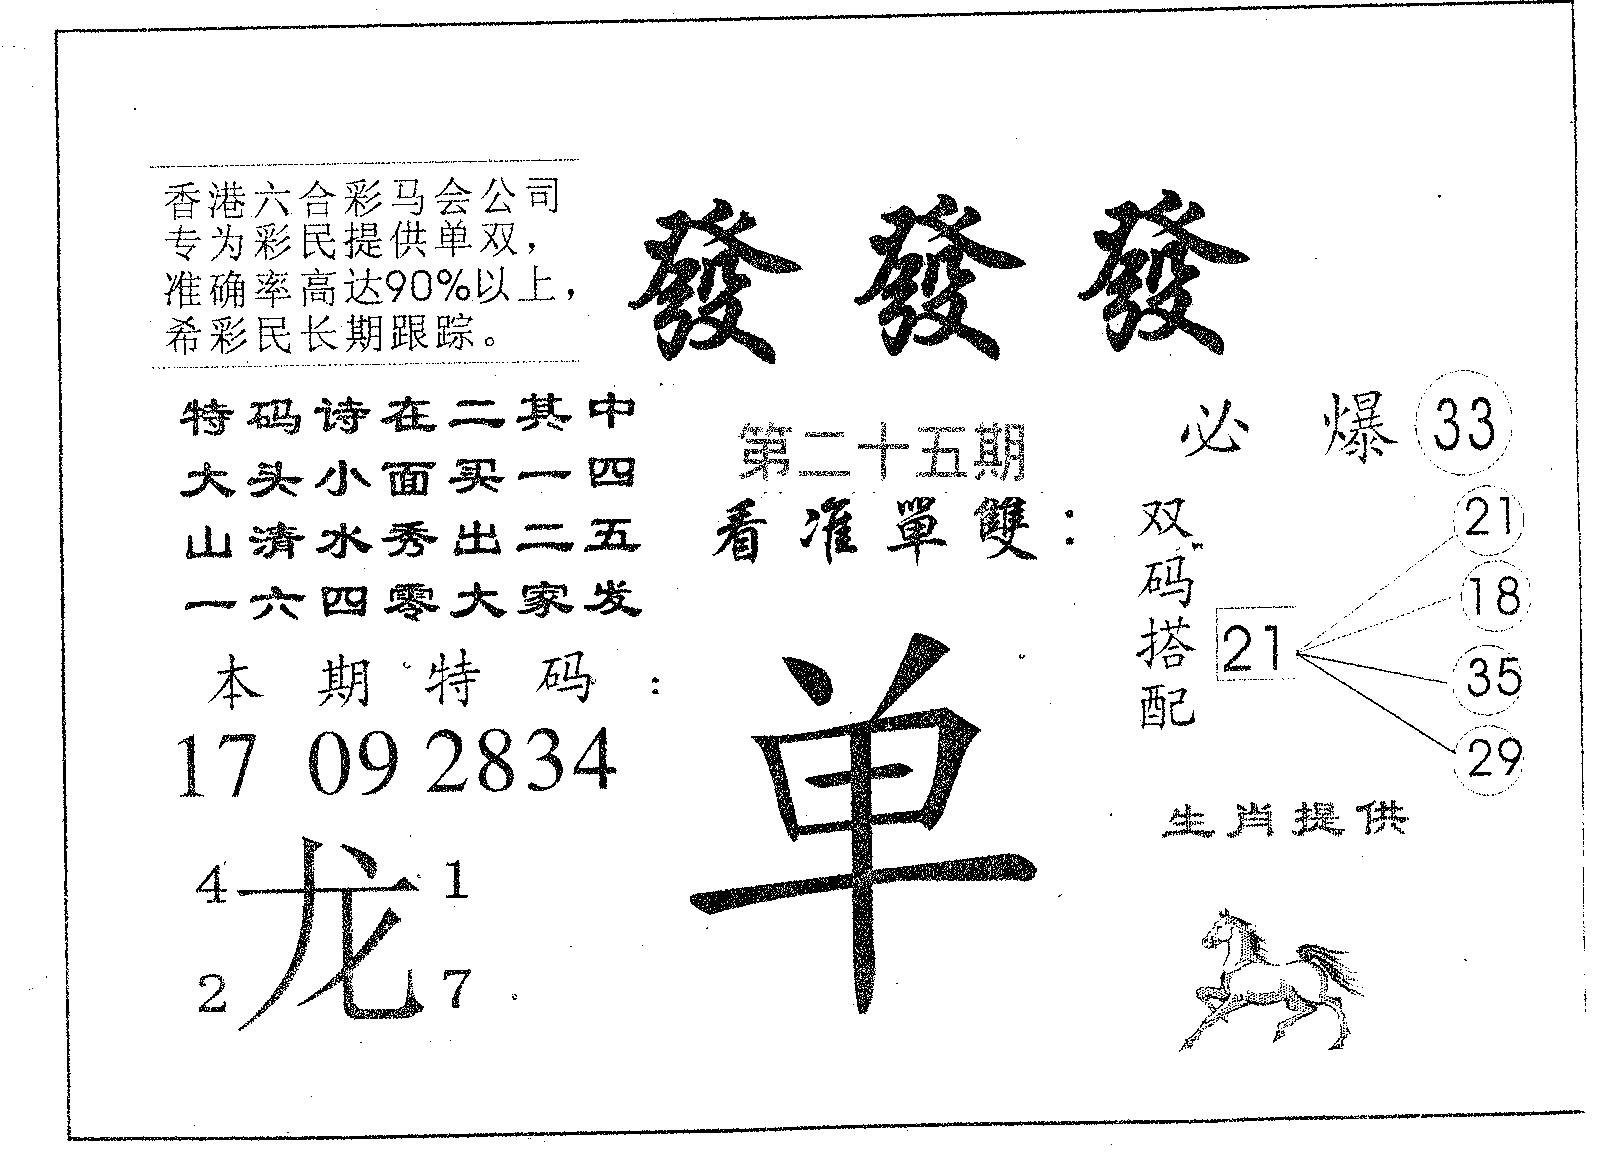 香港六合彩马会公司
专为彩民提供单双，
准确率高达90%以上，
希彩民长期跟踪。
發發發
特码诗在二其中
大头小面买一四
山清水秀出二五
一六四零大家发
第二十五期
看准單雙：
单
必爆 33
双码搭配
21
21
18
35
29
本期特码：
17 09 28 34
4 龙 1
2 7
生肖提供